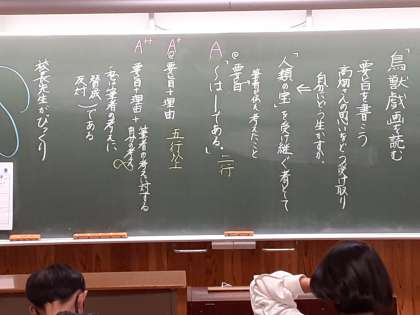 『鳥獣戯画』を読む
要旨を書こう
高畑さんの思いをどう受け取り
自分にどう生かすか。
「人類の宝」を受け継ぐ者として
筆者が伝え考えたこと
@要旨
A
「〜は〜である。」二行
A⁺
@要旨+理由 五行以上
A⁺⁺
要旨+理由+筆者の考えに対する
自分の考え ∞
・私は筆者の考えに、
賛成
反対
である
校長先生がびっくり